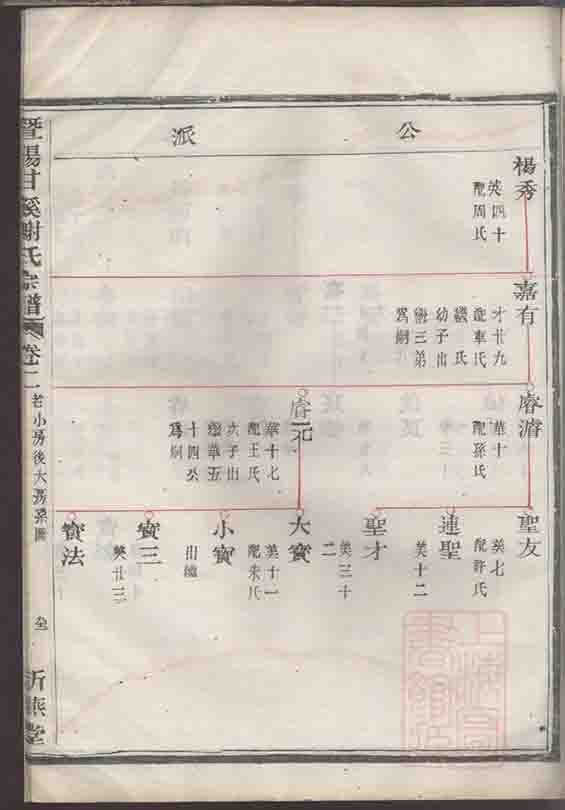 公派
楊秀
英四十
配周氏
嘉有
才廿九
配車氏
氏
幼子出
三弟
爲嗣
華十
配孫氏
元
華十七
配王氏
次子出
華五
十四公
爲嗣
聖友
英七
配許氏
連聖
英十二
聖才
英三十
二
大寶
英十一
配朱氏
小寶
出繼
寶三
英廿三
寶法
暨陽甘溪謝氏宗譜
卷二
老小房後大房系圖